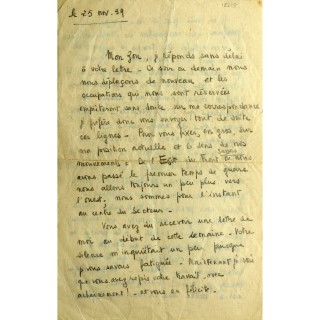 le 25 nov. 39
Mon Zou, je réponds sans délai
à votre lettre - Ce soir ou demain nous
nous déplaçons de nouveau et les
occupations qui nous sont réservées
empièteront sans doute sur ma correspondance
je préfère donc vous envoyer tout de suite
ces lignes - Pour vous fixer, en gros, sur
ma position actuelle et le sens de nos
mouvements : de l'Est du front où nous
avons passé le premier temps de guerre
nous allons toujours un peu plus vers
l'ouest, nous sommes pour l'instant
au centre du secteur -
Vous avez dû recevoir une lettre de
moi au début de cette semaine - Votre
silence m'inquiétait un peu parce que
je vous savais fatiguée - Maintenant je vois
que vous avez repris votre travail, avec
acharnement ! et vous en félicite -